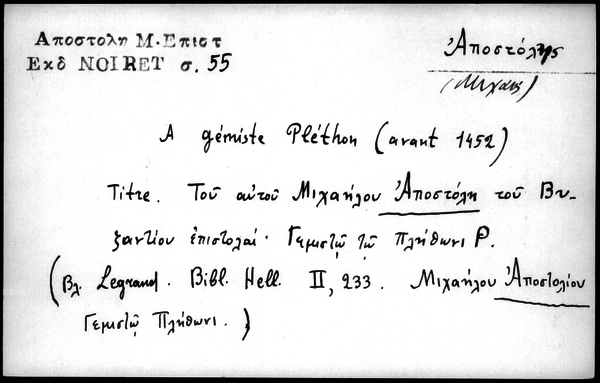 Αποστολη Μ. Επιστ
Εκδ NOIRET σ. 55
Ἀποστόλης
(Μιχαὴλ)
A gémiste Pléthon (avant 1452)
Titre. Τοῦ αὐτοῦ Μιχαήλου Ἀποστόλη τοῦ Βυ-
ζαντίου ἐπιστολαί· Γεμιστῷ τῷ Πλήθωνι Ρ.
(Βλ. Legrand. Bibl. Hell. II, 233. Μιχαήλου Ἀποστολίου
Γεμιστῷ Πλήθωνι.)